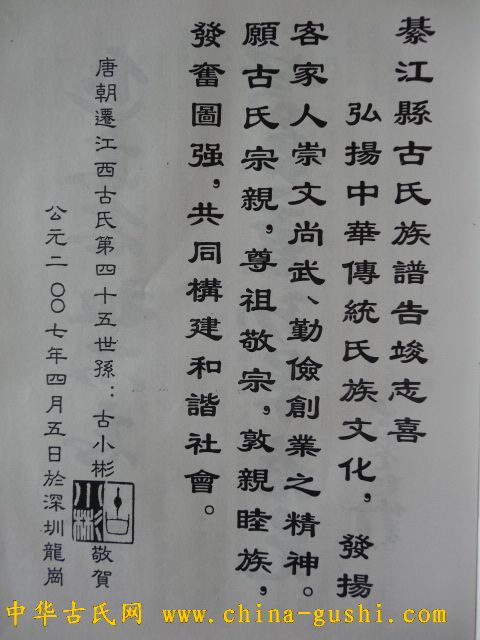 綦江縣古氏族譜告竣志喜
弘揚中華傳統氏族文化，發揚
客家人崇文尚武、勤儉創業之精神。
願古氏宗親，尊祖敬宗，敦親睦族，
發奮圖强，共同構建和諧社會。
唐朝遷江西古氏第四十五世孫：古小彬 敬賀
公元二〇〇七年四月五日於深圳龍崗
中华古氏网 www.china-gushi.com